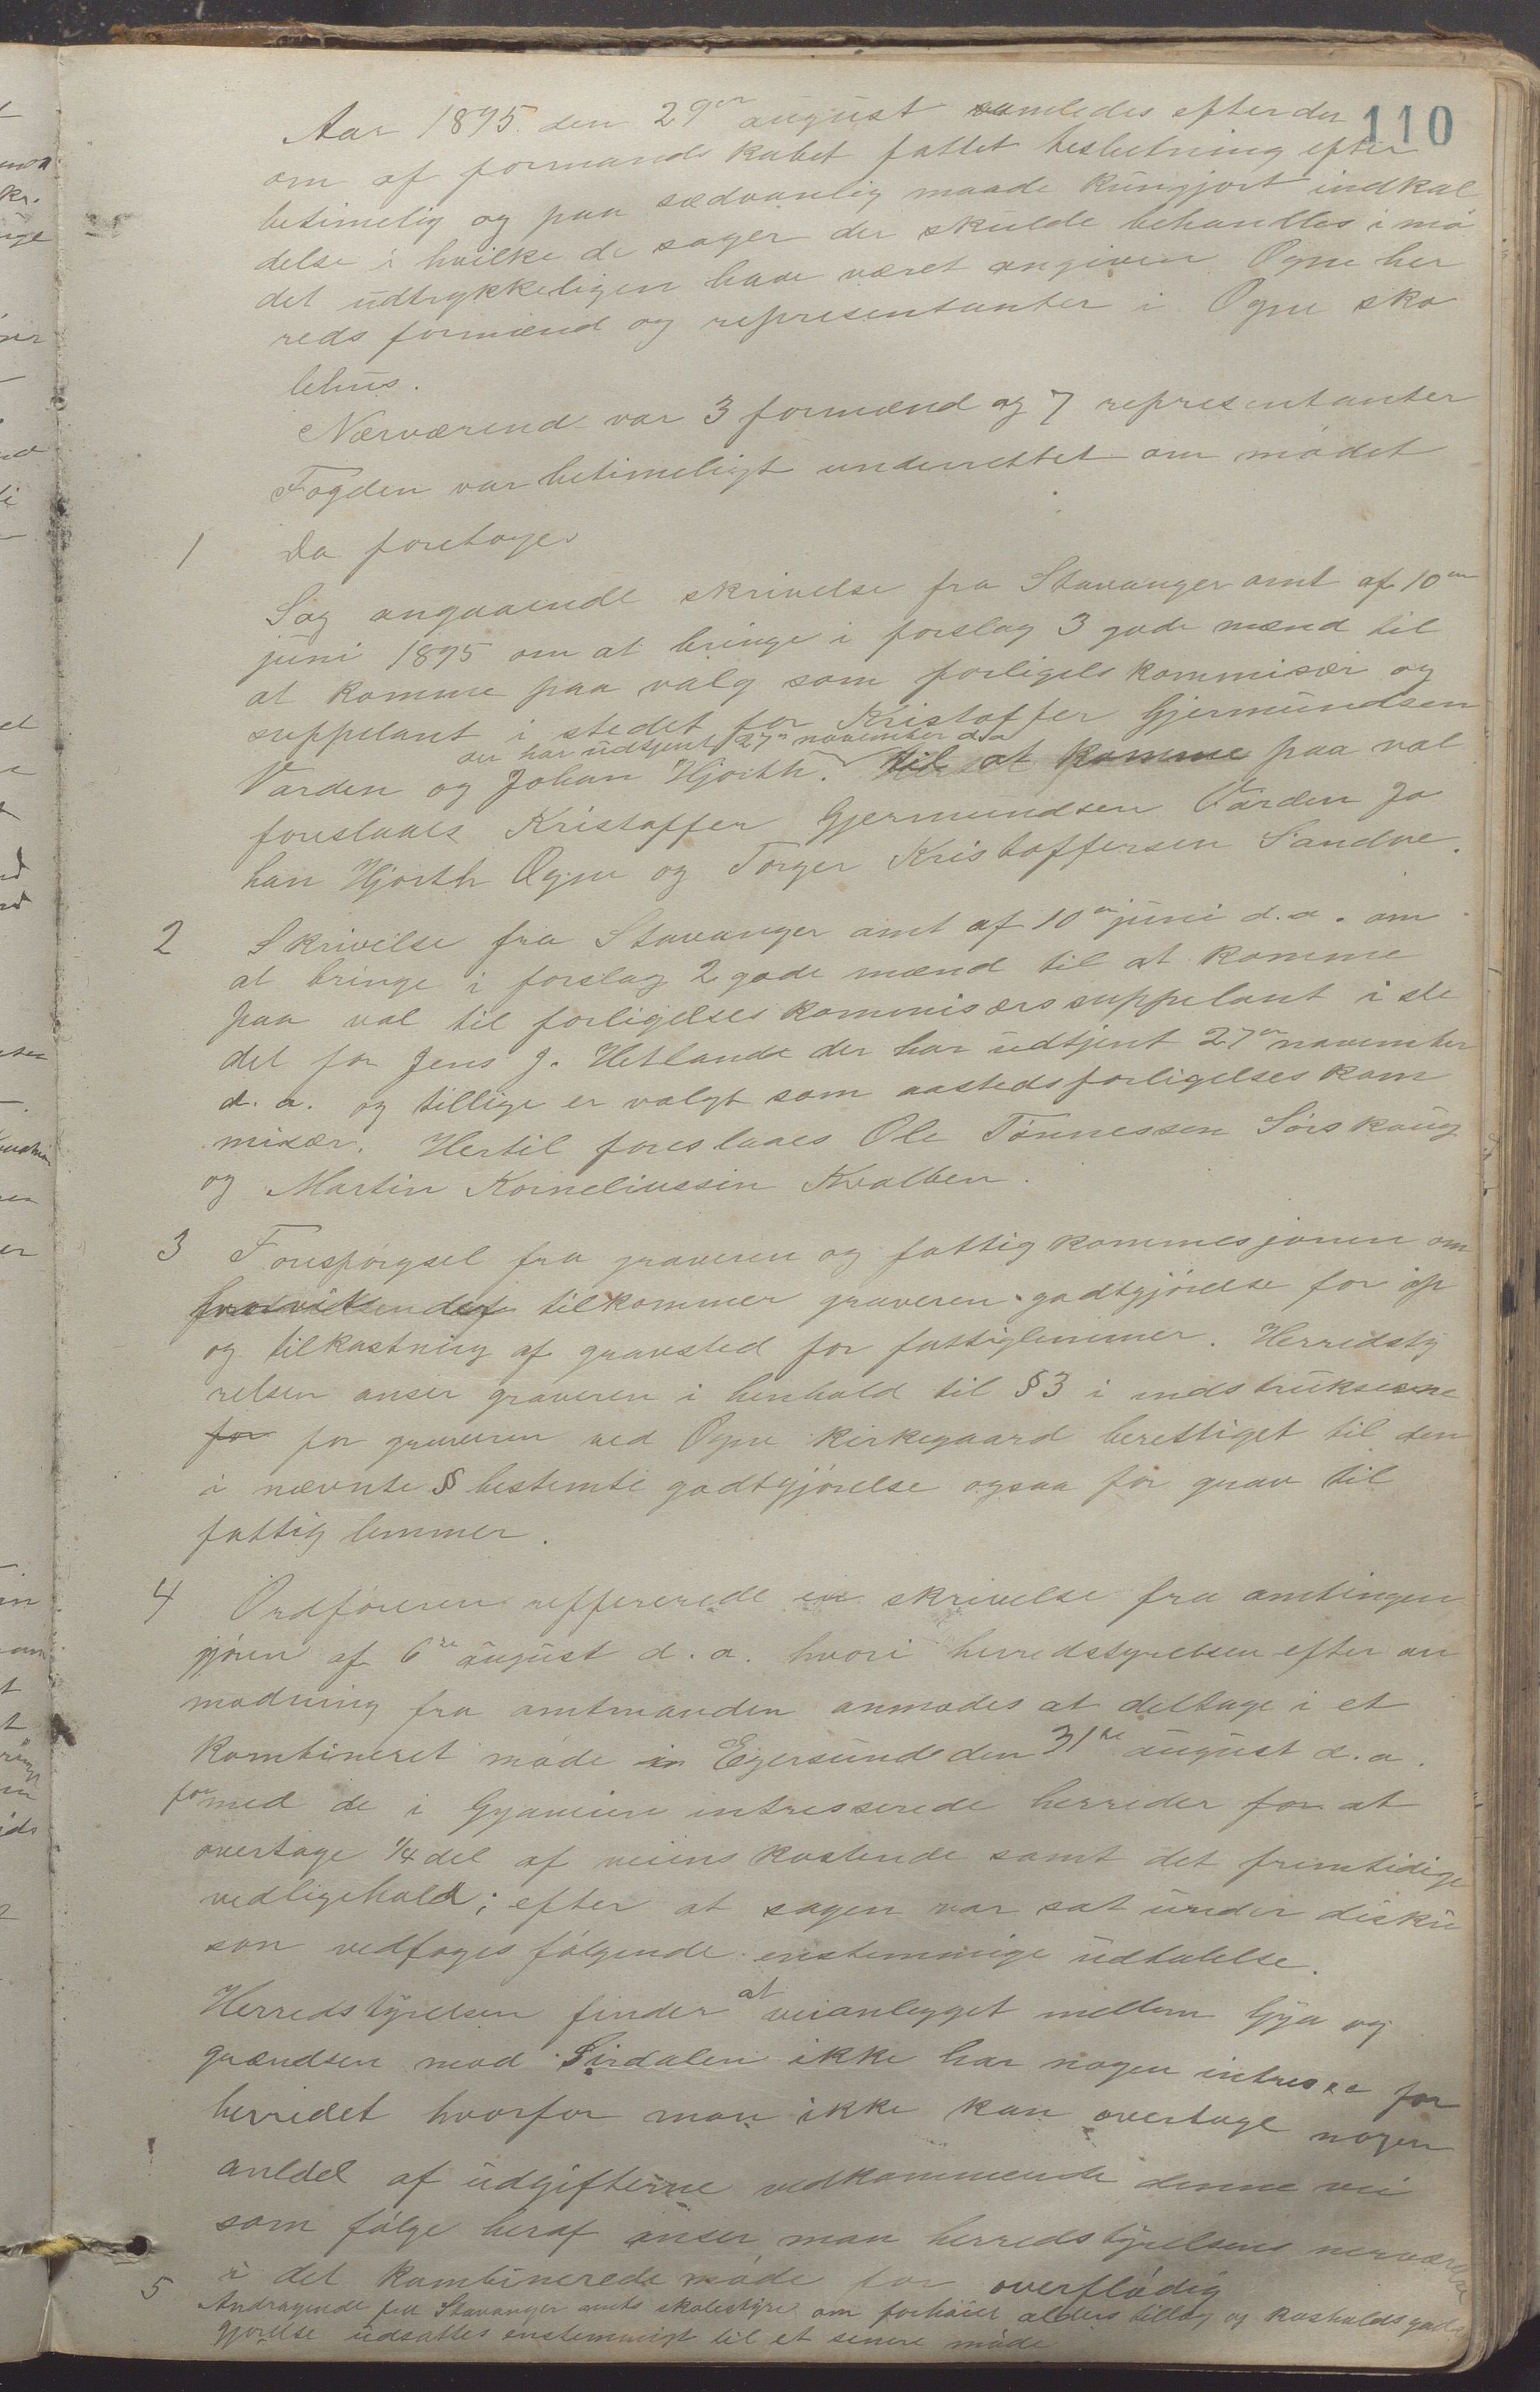 110
Aar 1895 den 29en august samledes efter der
om af formandskabet fattet beslutning efter
betimelig og paa sædvanlig maade kungjort indkal
delse i hvilke de sager der skulde behandles i mø
det udtrykkeligen have været angiven Ogne her
reds formænd og representanter i Ogne sko
lehus.
Nærværend var 3 formænd og 7 representanter
Fogden var betimeligt underrettet om mødet
1 Da foretoges
Sag angaaende skrivelse fra Stavanger amt af 10en
juni 1895 om at bringe i forslag 3 gode mænd til
at komme paa valg som forligels kommisær og
suppelant i stedet for Kristoffer Gjermundsen
der har udtjent 27n november d.a
Varden og Johan Hjorth. Til at komme paa val
foreslaaes Kristoffer Gjermundsen Varden Jo
han Hjorth Ogne og Torger Kristoffersen Sandve.
2 Skrivelse fra Stavanger amt af 10en juni d.a. om
at bringe i forslag 2 gode mænd til at komme
paa val til forligelseskommisærssuppelant i ste
det for Jens J. Hetlande der har udtjent 27en november
d.a. og tillige er valgt som aastedsforligelseskom
misær. Hertil foreslaaes Ole Tønnessen Sørskoug
og Martin Korneliussen Kvalben.
3 Forespørgsel fra graveren og fattigkommesjonen om
tilkommer graveren godtgjørelse for op
og tilkastning af gravsted for fattiglemmer. Herredsty
relsen anser graveren i henhold til §3 i indstrukserne
for for graveren ved Ogne kirkegaard berettiget til den
i nævnte § bestemte godtgjørelse ogsaa for grav til
fattig lemmer.
4 Ordføreren reffererede en skrivelse fra amtingen
gjøren af 6te august d.a. hvori herredsstyrelsen efter an
modning fra amtmanden anmodes at deltage i et
kombineret møde in Egersund den 31te august d.a.
for med de i Gyaveien intresserede herreder for at
overtage 1/4 del af veiens kostende samt det fremtidige
vedligehold; efter at sagen var sat under disku
son vedtoges følgende enstemmige udtalelse.
Herredstyrelsen finder at veianlegget mellem Gya og
grændsen mod Sirdalen ikke har nogen intresse for
herredet hvorfor man ikke kan overtage nogen
andel af udgifterne vedkommende denne vei
som følge heraf anser man herredstyrelsens nerværelse
i det kombinerede møde for overflødig
5 Andragende fra Stavanger amts skolestyre om forhøiet alders tillæg og kostholdsgodt
gjørelse udsattes enstemmigt til et senere møde